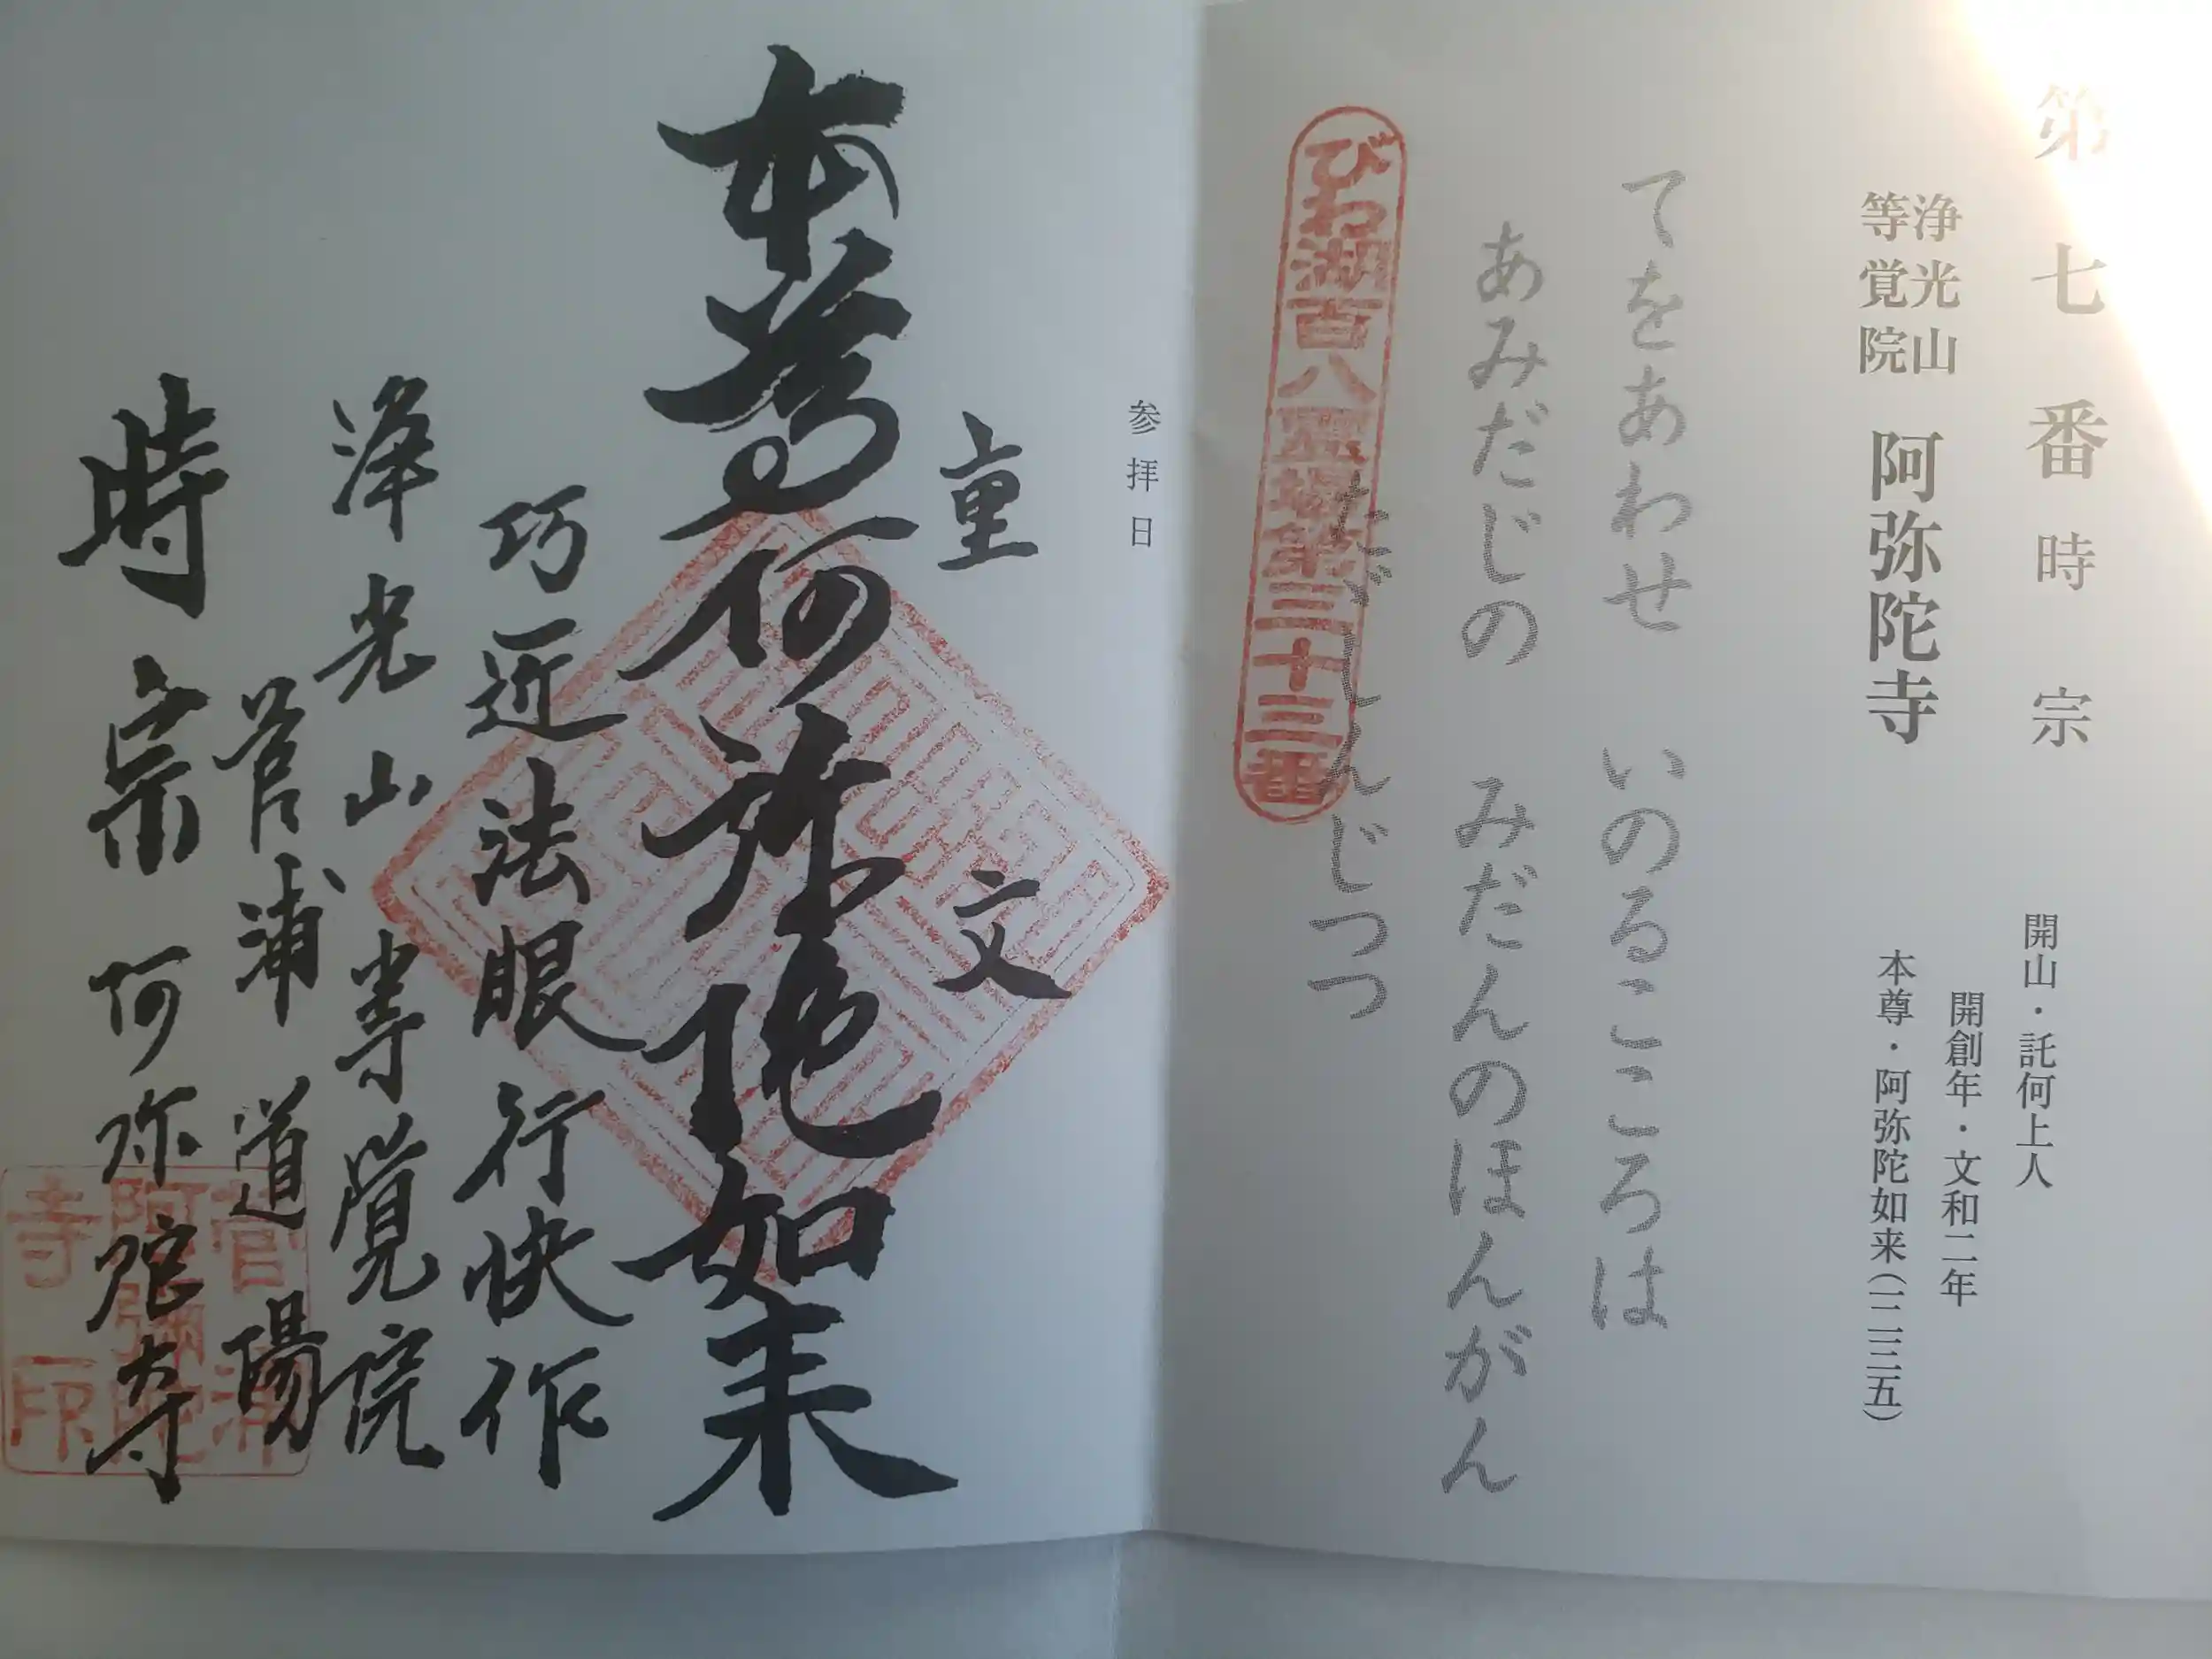 第七番時宗
開山・託何上人
開創年・文和二年
浄光山
等覚院
阿弥陀寺
本尊・阿弥陀如来(一二三五)
てをあわせ いのるこころは
あみだじの みだんのほんがん
たゞしんじつつ
びわ湖百八霊場第三十三番
参拝日
重文
本尊阿弥陀如来
巧匠法眼行快作
浄光山等覚院
菅浦道場
時宗阿弥陀寺
菅浦
阿彌陀
寺印